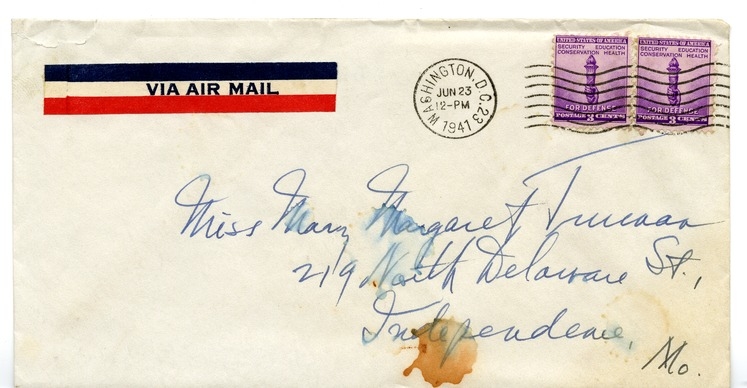 VIA AIR MAIL
WASHINGTON, D.C. 23
JUN 23
12-PM
1941
UNITED STATES OF AMERICA
SECURITY EDUCATION
CONSERVATION HEALTH
FOR DEFENSE
POSTAGE 3 CENTS
UNITED STATES OF AMERICA
SECURITY EDUCATION
CONSERVATION HEALTH
FOR DEFENSE
POSTAGE 3 CENTS
Miss Mary Margaret Truman
219 North Delaware St.,
Independence,
Mo.